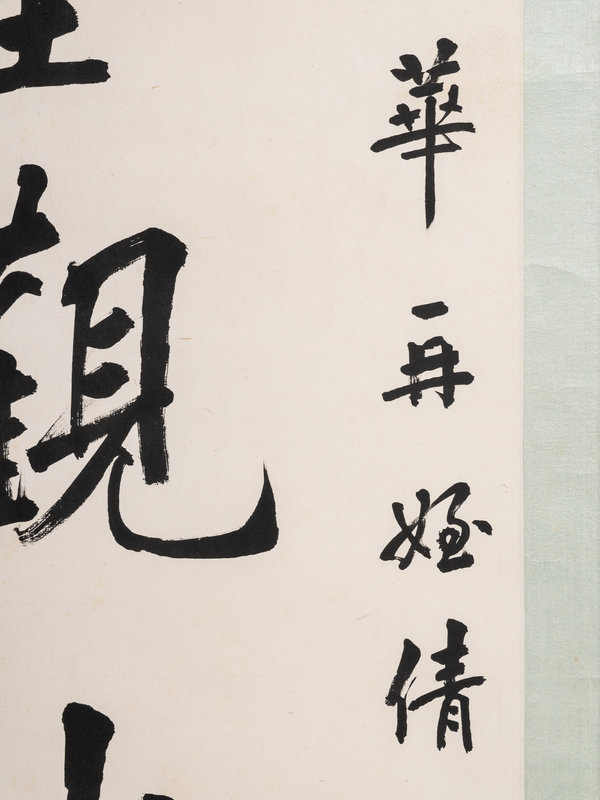 華再姪倩
觀